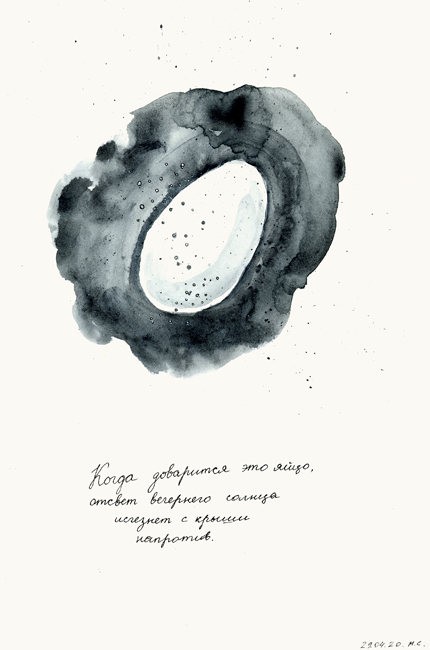 Когда доварится это яйцо,
отсвет вечернего солнца
исчезнет с крыши
напротив.
29.04.20. М.С.